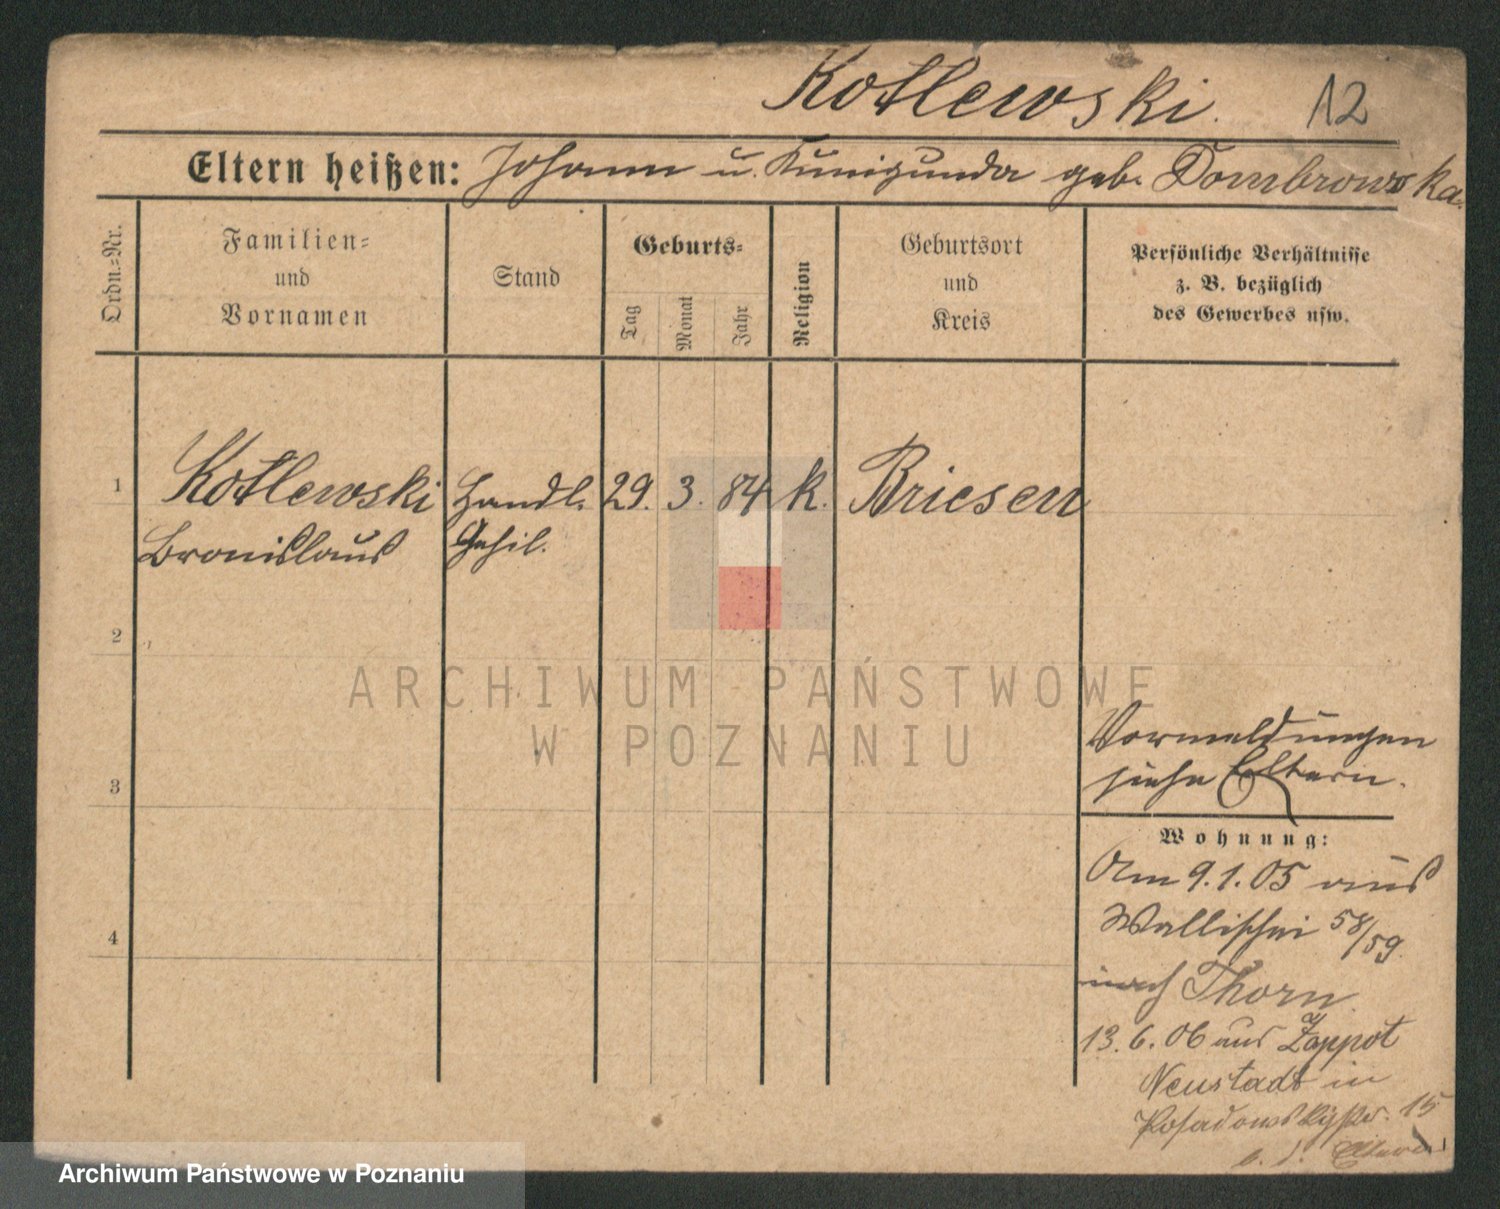 Kotlewski. 12
Eltern heißen: Johann u. Kunigunda geb. Dombrowska.
Ordn.=Nr.
Familien=
und
Vornamen
Stand
Geburts=
Tag
Monat
Jahr
Religion
Geburtsort
und
Kreis
Persönliche Verhältnisse
z. B. bezüglich
des Gewerbes usw.
1 Kotlewski Handl. 29. 3. 84 k. Briesen
Bronislaus Gehil.
2
ARCHIWUM PAŃSTWOWE
W POZNANIU
Vormeldungen
3 siehe Eltern.
Wohnung:
Am 9.1.05 aus
4 Wallischei 58/59.
nach Thorn
13.6.06 aus Zoppot
Neustadt in
Posadowskystr. 15
b. d. Eltern
Archiwum Państwowe w Poznaniu